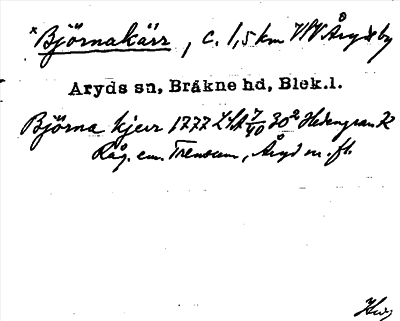 *Björnakärr, c. 1,5 km VNV Åryds by
Aryds sn, Bräkne hd, Blek.l.
Björna kjerr 1777 LSA 7/40 30² Hedengran K
Råg. em. Trensum, Åryd m. fl.